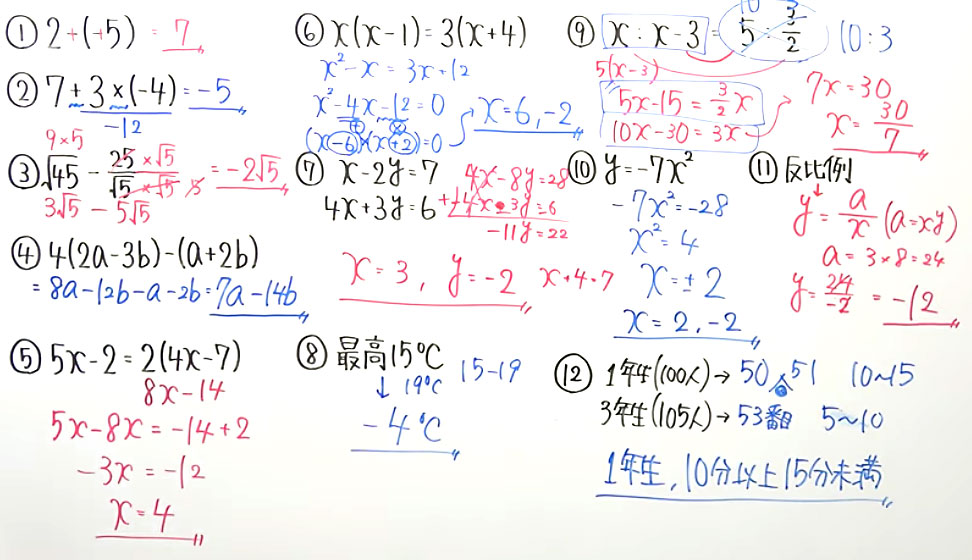 ① 2+(+5) = 7
② 7+3×(-4) = -5
-12
9×5
③ √45 - 25×√5/√5×√5 5 = -2√5
3√5 - 5√5
④ 4(2a-3b)-(a+2b)
= 8a-12b-a-2b=7a-14b
⑤ 5x-2=2(4x-7)
8x-14
5x-8x=-14+2
-3x=-12
x=4
⑥ x(x-1)=3(x+4)
x²-x=3x+12
x²-4x-12=0
(x-6)(x+2)=0
x=6,-2
⑦ x-2y=7
4x+3y=6
4x-8y=28
-11y=22
x=3, y=-2
x+4=7
⑧ 最高15℃
↓ 19℃
15-19
-4℃
⑨ x:x-3=5:3/2
10 3
10:3
5(x-3)
5x-15=3/2x
10x-30=3x
7x=30
x=30/7
⑩ y=-7x²
-7x²=-28
x²=4
x=±2
x=2,-2
⑪ 反比例
↓
y=a/x (a=xy)
a=3×8=24
y=24/-2=-12
⑫ 1年生(100人)→50 51 10~15
合
3年生(105人)→53番 5~10
1年生,10分以上15分未満